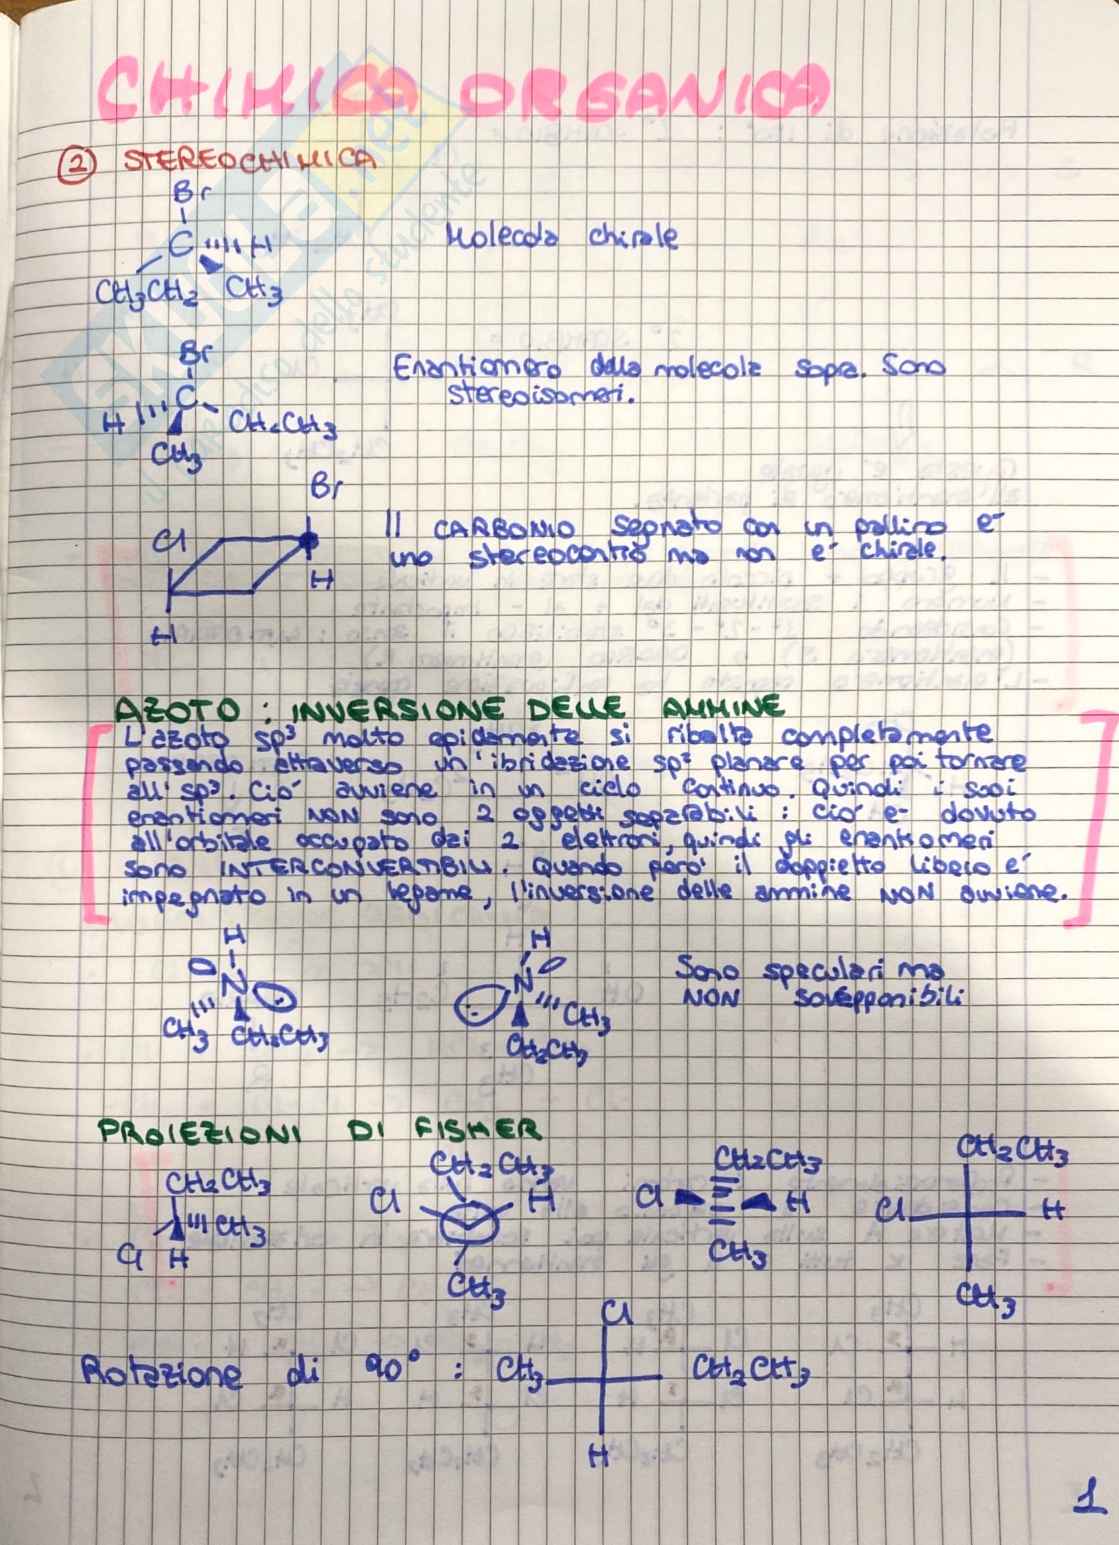 CHIMICA ORGANICA
② STEREOCHIMICA
Br
C H
CH3CH2 CH3
Molecola chirale
Br
H C CH2CH3
CH3
Enantiomero della molecola sopra. Sono
stereoisomeri.
Br
Cl
H
H
Il CARBONIO segnato con un pallino è
uno stereocentro ma non è chirale.
AZOTO : INVERSIONE DELLE AMMINE
L'azoto sp³ molto rapidamente si ribalta completamente
passando attraverso un'ibridazione sp² planare per poi tornare
all'sp³. Ciò avviene in un ciclo continuo. Quindi i suoi
enantiomeri NON sono 2 oggetti separabili : ciò è dovuto
all'orbitale occupato dai 2 elettroni, quindi gli enantiomeri
sono INTERCONVERTIBILI. Quando però il doppietto libero è
impegnato in un legame, l'inversione delle ammine NON avviene.
H
N
CH3 CH2CH3
H
N
CH3
CH2CH3
Sono speculari ma
NON sovrapponibili
PROIEZIONI DI FISHER
CH2CH3
CH3
Cl H
CH2CH3
Cl H
CH3
CH2CH3
Cl H
CH3
CH2CH3
Cl H
CH3
Rotazione di 90° :
Cl
CH3 CH2CH3
H
1